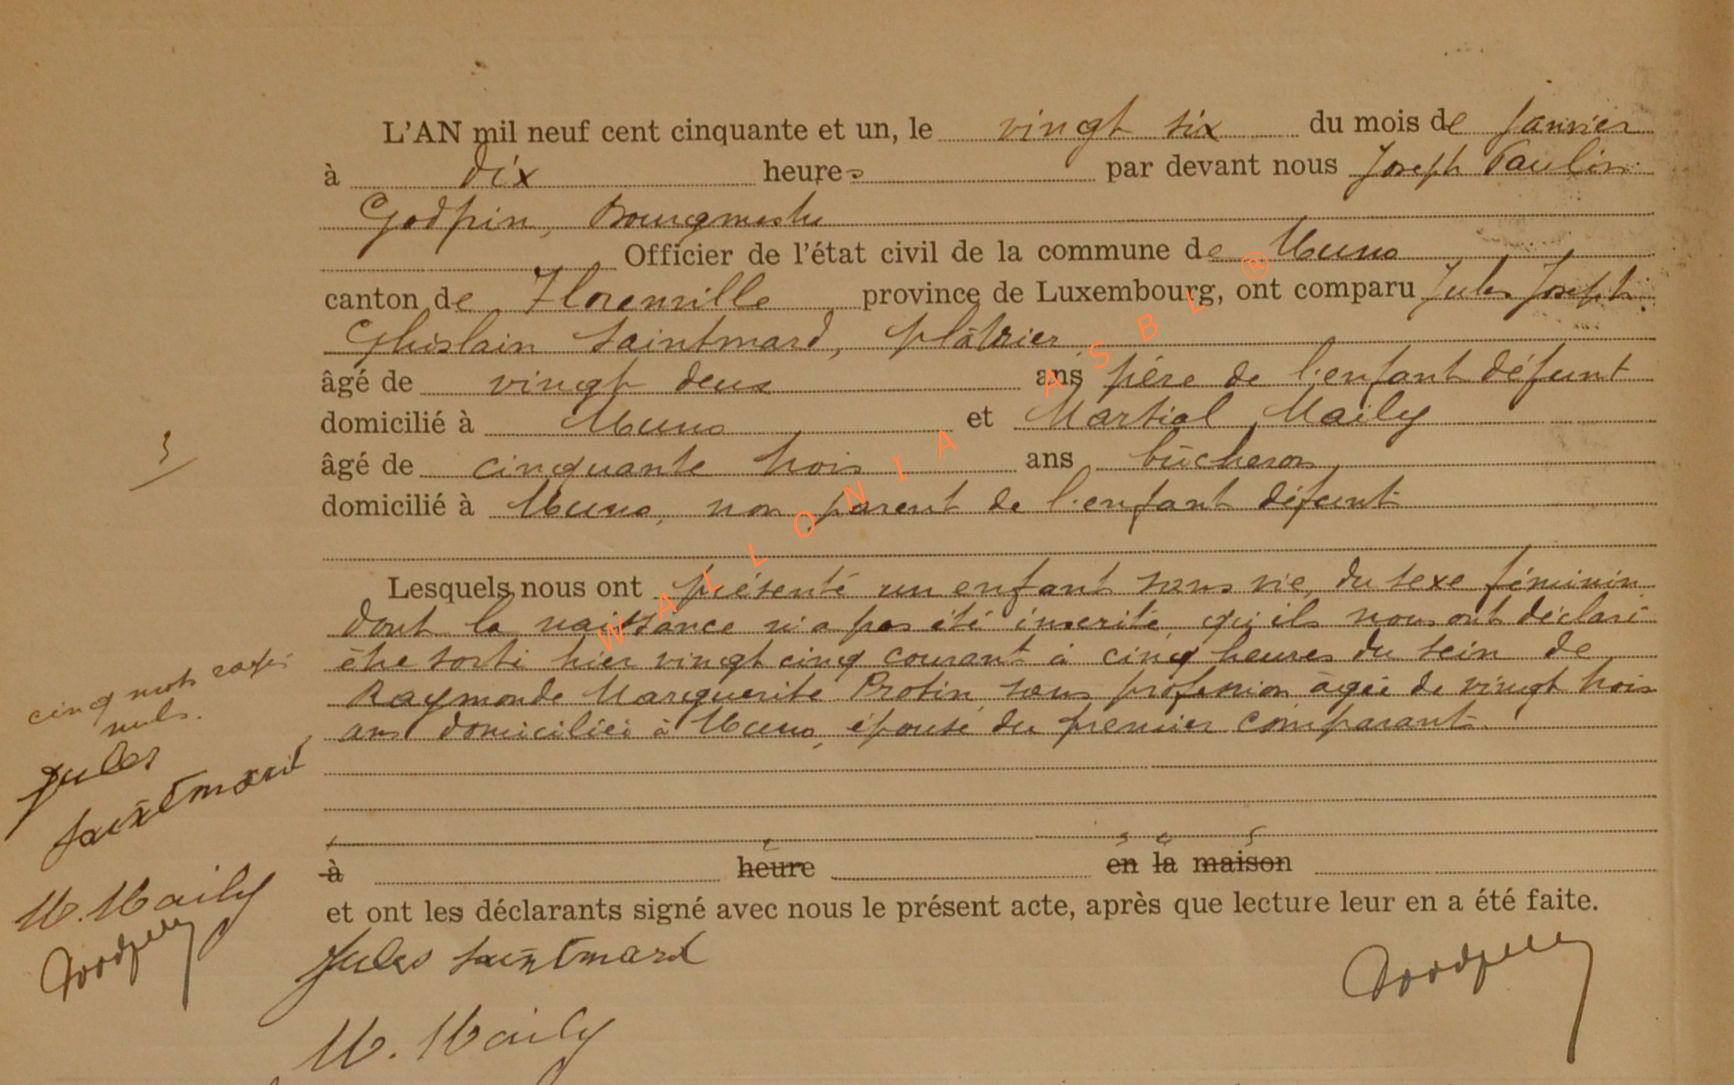 L'AN mil neuf cent cinquante et un, le vingt six du mois de Janvier
à dix heures par devant nous Joseph Paulin
Godfrin, Bourgmestre
Officier de l'état civil de la commune de Muno
canton de Florenville province de Luxembourg, ont comparu Jules Joseph
Ghislain Saintmard, plâtrier
âgé de vingt deux ans père de l'enfant défunt
domicilié à Muno et Martial Maily
âgé de cinquante trois ans bûcheron,
domicilié à Muno, non parent de l'enfant défunt
Lesquels nous ont présenté un enfant sans vie, du sexe féminin
dont la naissance n'a pas été inscrite, qu'ils nous ont déclaré
être sorti hier vingt cinq courant à cinq heures du sein de
Raymonde Marguerite Protin sans profession âgée de vingt trois
ans domiciliée à Muno, épouse du premier comparant.
à heure en la maison
et ont les déclarants signé avec nous le présent acte, après que lecture leur en a été faite.
Jules Saintmard
M. Maily
Godfrin
3
cinq mots rayés
nuls.
Jules
Saintmard
M. Maily
Godfrin
WALLONIA ASBL ®